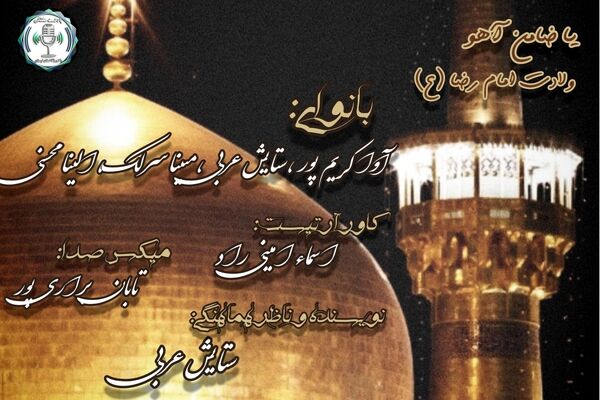 یا ضامن آهو
ولادت امام رضا (ع)
بانوای:
آوا کریم پور، ستایش عربی، مبینا سرلک، الینا محبی
کاور آرتیست:
اسماء امینی راد
میکس صدا:
تابان براری پور
نویسنده و ناظر هماهنگی:
ستایش عربی